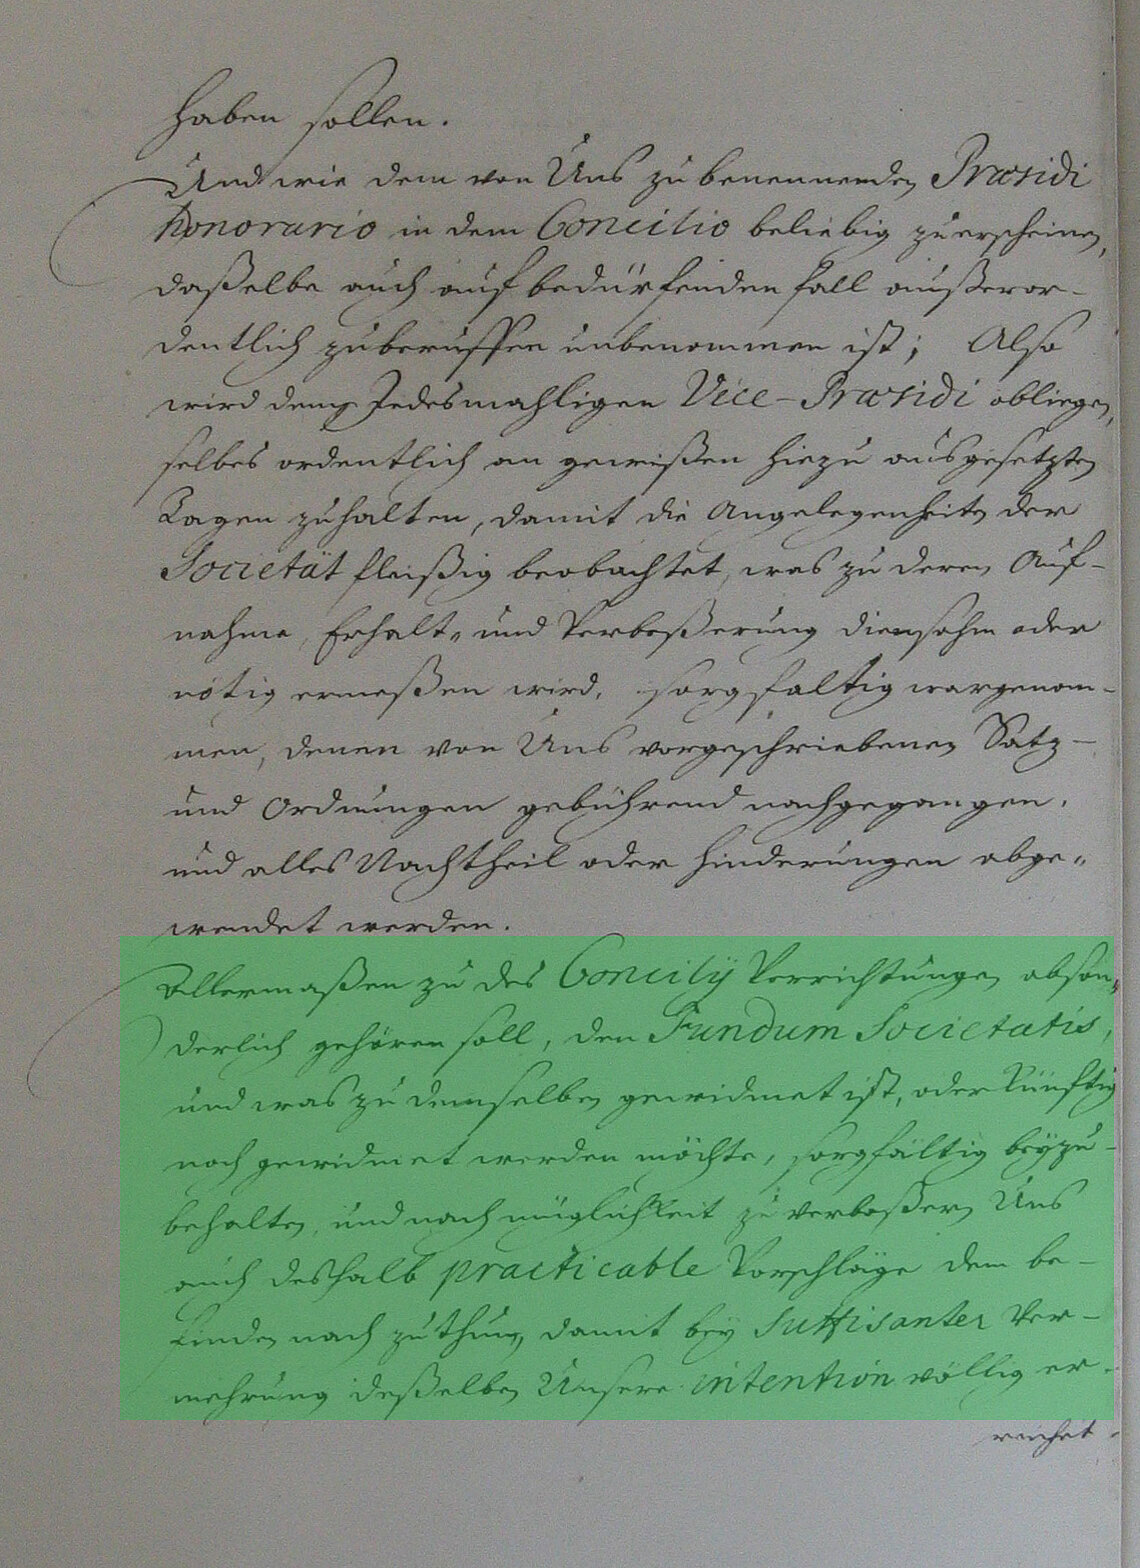 haben sollen.
Und wie dem von Uns zu benennenden Præsidi
honorario in dem Concilio beliebig zuerscheinen,
daßelbe auch auf bedürfenden fall außeror-
dentlich zuberuffen unbenommen ist; Also
wird dem Jedesmahligen Vice-Præsidi obliegen,
selbes ordentlich an gewißen hiezu ausgesetzten
Tagen zuhalten, damit die Angelegenheiten der
Societät fleißig beobachtet, was zu deren Auf-
nahme, Erhalt- und Verbeßerung diensahm oder
nötig ermeßen wird, sorgfaltig wargenom-
men, denen von Uns vorgeschriebenen Satz-
und Ordnungen gebührend nachgegangen,
und alles Nachtheil oder hinderungen abge-
wendet werden.
Allermaßen zu des Concilij Verrichtungen abson-
derlich gehören soll, den Fundum Societatis,
und was zu demselben gewidmet ist, oder Künfftig
noch gewidmet werden möchte, sorgfältig beyzu-
behalten, und nach müglichkeit zu verbeßern, Uns
auch deshalb practicable Vorschläge dem be-
finden nach zuthun, damit bey suffisanter Ver-
mehrung deßelben Unsere intention völlig er-
reichet